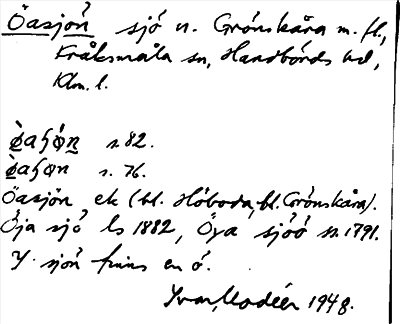 Öasjön sjö n. Grönskåra m. fl.,
Fråksmåla sn, Handbörds hd,
Klm. l.
s. 82.
s. 76.
Öasjön ek (bl. Höboda, bl. Grönskåra).
Öja sjö ls 1882, Öya sjöö sn. 1791.
I sjön finns en ö.
Yvar Modéer 1948.